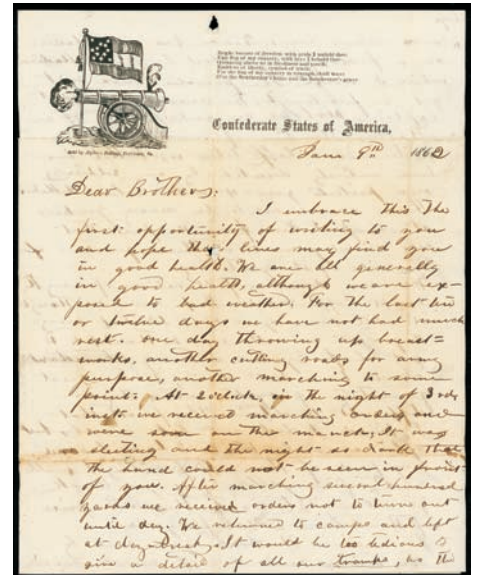 Confederate States of America,
Janu 9th 1862
Dear Brothers;
I embrace this the
first opportunity of writing to you
and hope these lines may find you
in good health. We are all generally
in good health, although we are ex-
posed to bad weather. For the last ten
or twelve days we have not had much
rest. one day throwing up breast-
works, another cutting roads for army
purpose, another marching to some
point. At 2 oclock, in the night of 3rd
inst. we received marching orders and
were soon on the march, It was
sleeting and the night so dark that
the hand could not be seen in front
of you. After marching several hundred
yards we received orders not to turn out
until day. We returned to camps and left
at day break, It would be too tedious to
give a detail of all our tramps, as the